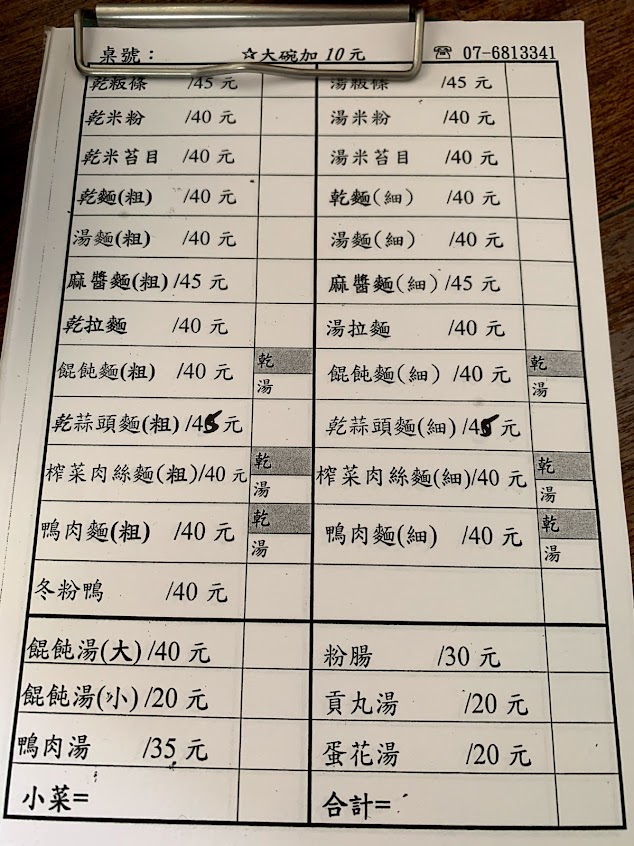 桌號： ☆大碗加 10 元 ☎ 07-6813341
乾粄條 /45 元 湯粄條 /45 元
乾米粉 /40 元 湯米粉 /40 元
乾米苔目 /40 元 湯米苔目 /40 元
乾麵(粗) /40 元 乾麵(細) /40 元
湯麵(粗) /40 元 湯麵(細) /40 元
麻醬麵(粗) /45 元 麻醬麵(細) /45 元
乾拉麵 /40 元 湯拉麵 /40 元
餛飩麵(粗) /40 元 乾 湯 餛飩麵(細) /40 元 乾 湯
乾蒜頭麵(粗) /45 元 乾蒜頭麵(細) /45 元
榨菜肉絲麵(粗)/40 元 乾 湯 榨菜肉絲麵(細)/40 元 乾 湯
鴨肉麵(粗) /40 元 乾 湯 鴨肉麵(細) /40 元 乾 湯
冬粉鴨 /40 元
餛飩湯(大) /40 元 粉腸 /30 元
餛飩湯(小) /20 元 貢丸湯 /20 元
鴨肉湯 /35 元 蛋花湯 /20 元
小菜= 合計=